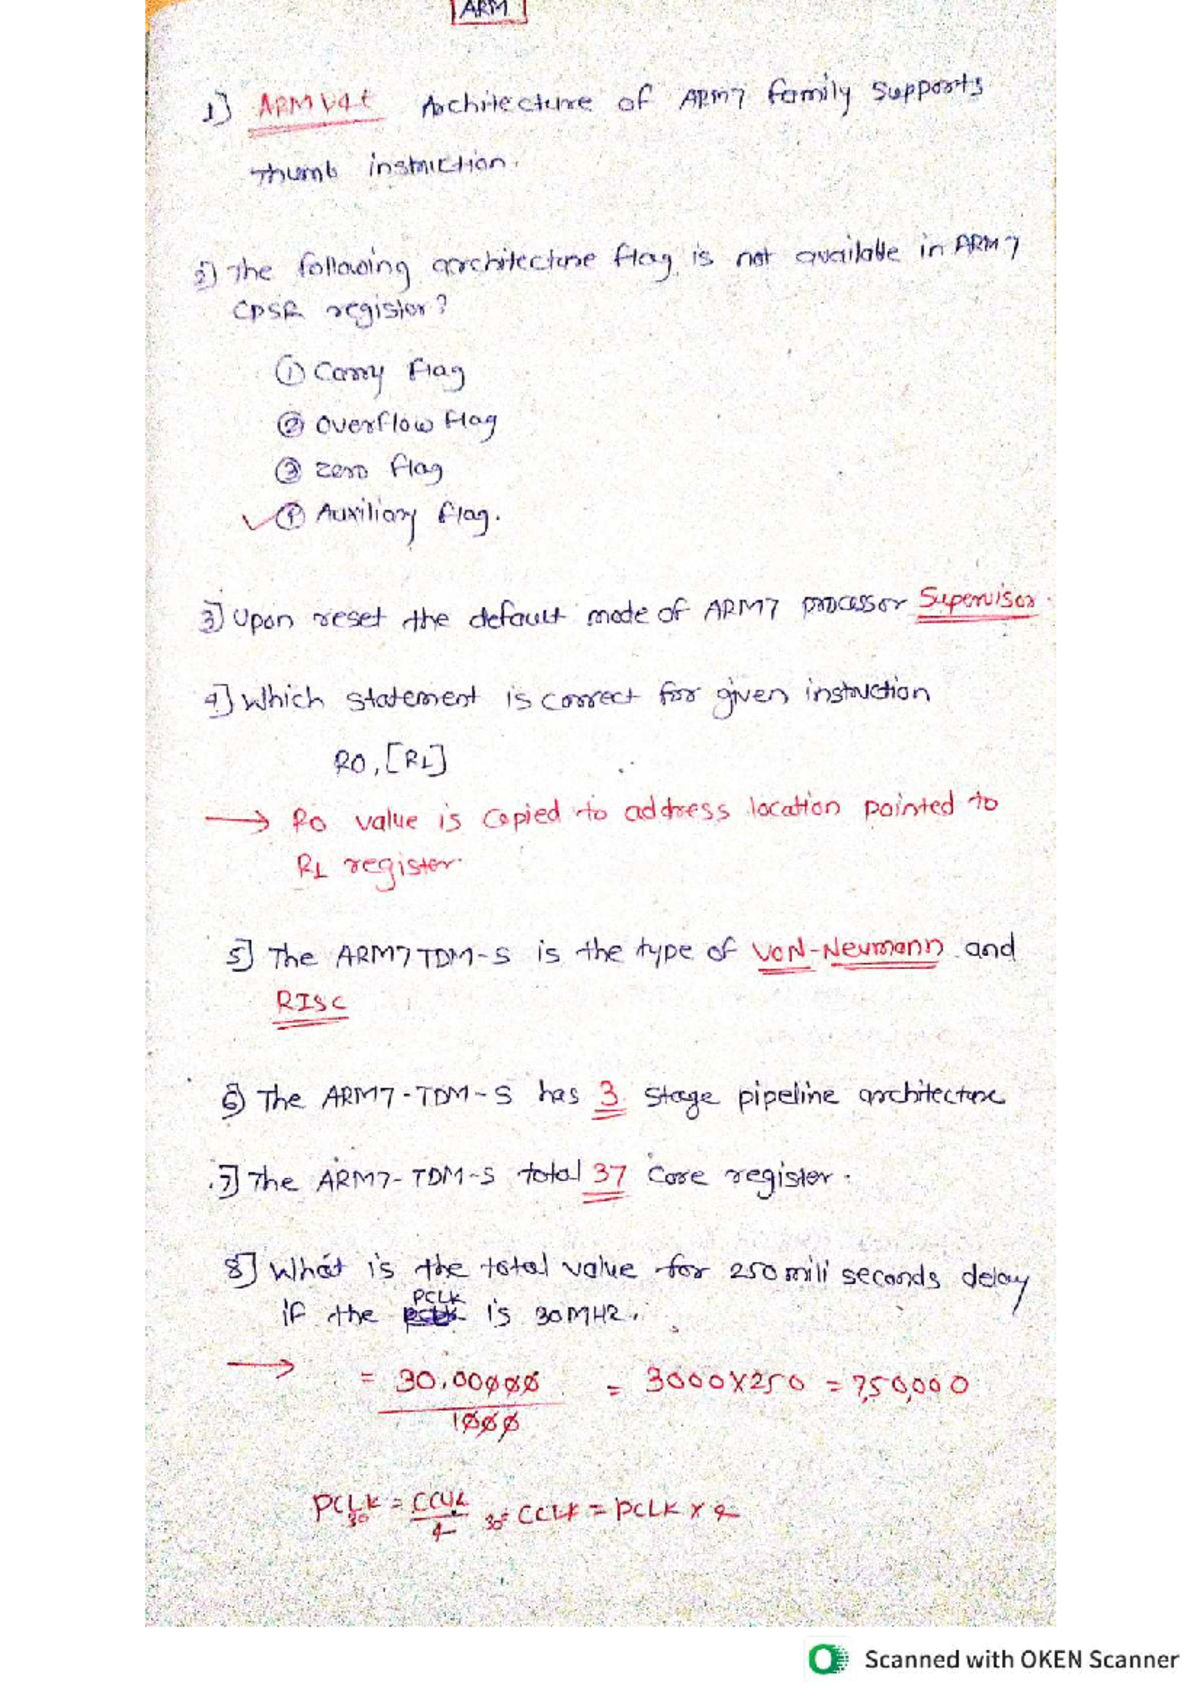 ARM
1] ARMV4t Architecture of ARM7 family supports
Thumb instruction.
2] The following architecture flag is not available in ARM7
CPSR register?
① Carry flag
② Overflow flag
③ zero flag
④ Auxiliary flag.
3] Upon reset the default mode of ARM7 processor Supervisor.
4] Which statement is correct for given instruction
R0, [R1]
→ R0 value is copied to address location pointed to
R1 register.
5] The ARM7TDM-S is the type of VON-Neumann and
RISC
6] The ARM7-TDM-S has 3 stage pipeline architecture
7] The ARM7-TDM-S total 37 core register.
8] What is the total value for 250 mili seconds delay
PCLK
if the is 30MHz.
→ = 30,00000 = 3000X250 = 750,000
1000
PCLK = CCLK CCLK = PCLK X 4
30 4 30
Scanned with OKEN Scanner